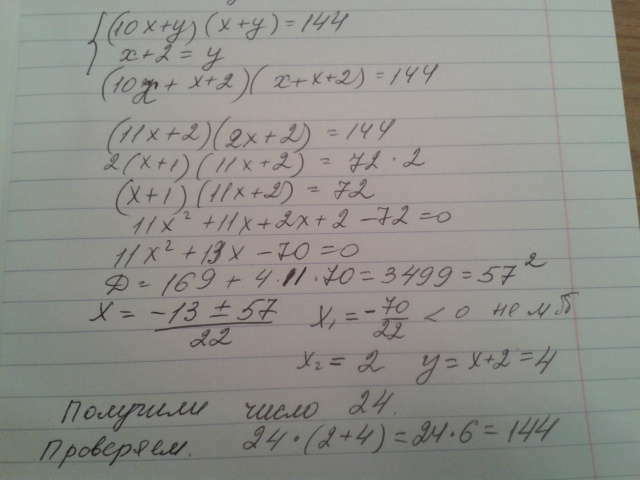 (10x+y)(x+y)=144
x+2=y
(10x+x+2)(x+x+2)=144
(11x+2)(2x+2)=144
2(x+1)(11x+2)=72·2
(x+1)(11x+2)=72
11x²+11x+2x+2-72=0
11x²+13x-70=0
D=169+4·11·70=3499=57²
x=(-13±57)/22 x₁=-70/22<0 не м б
x₂=2 y=x+2=4
Получили число 24.
Проверяем. 24·(2+4)=24·6=144